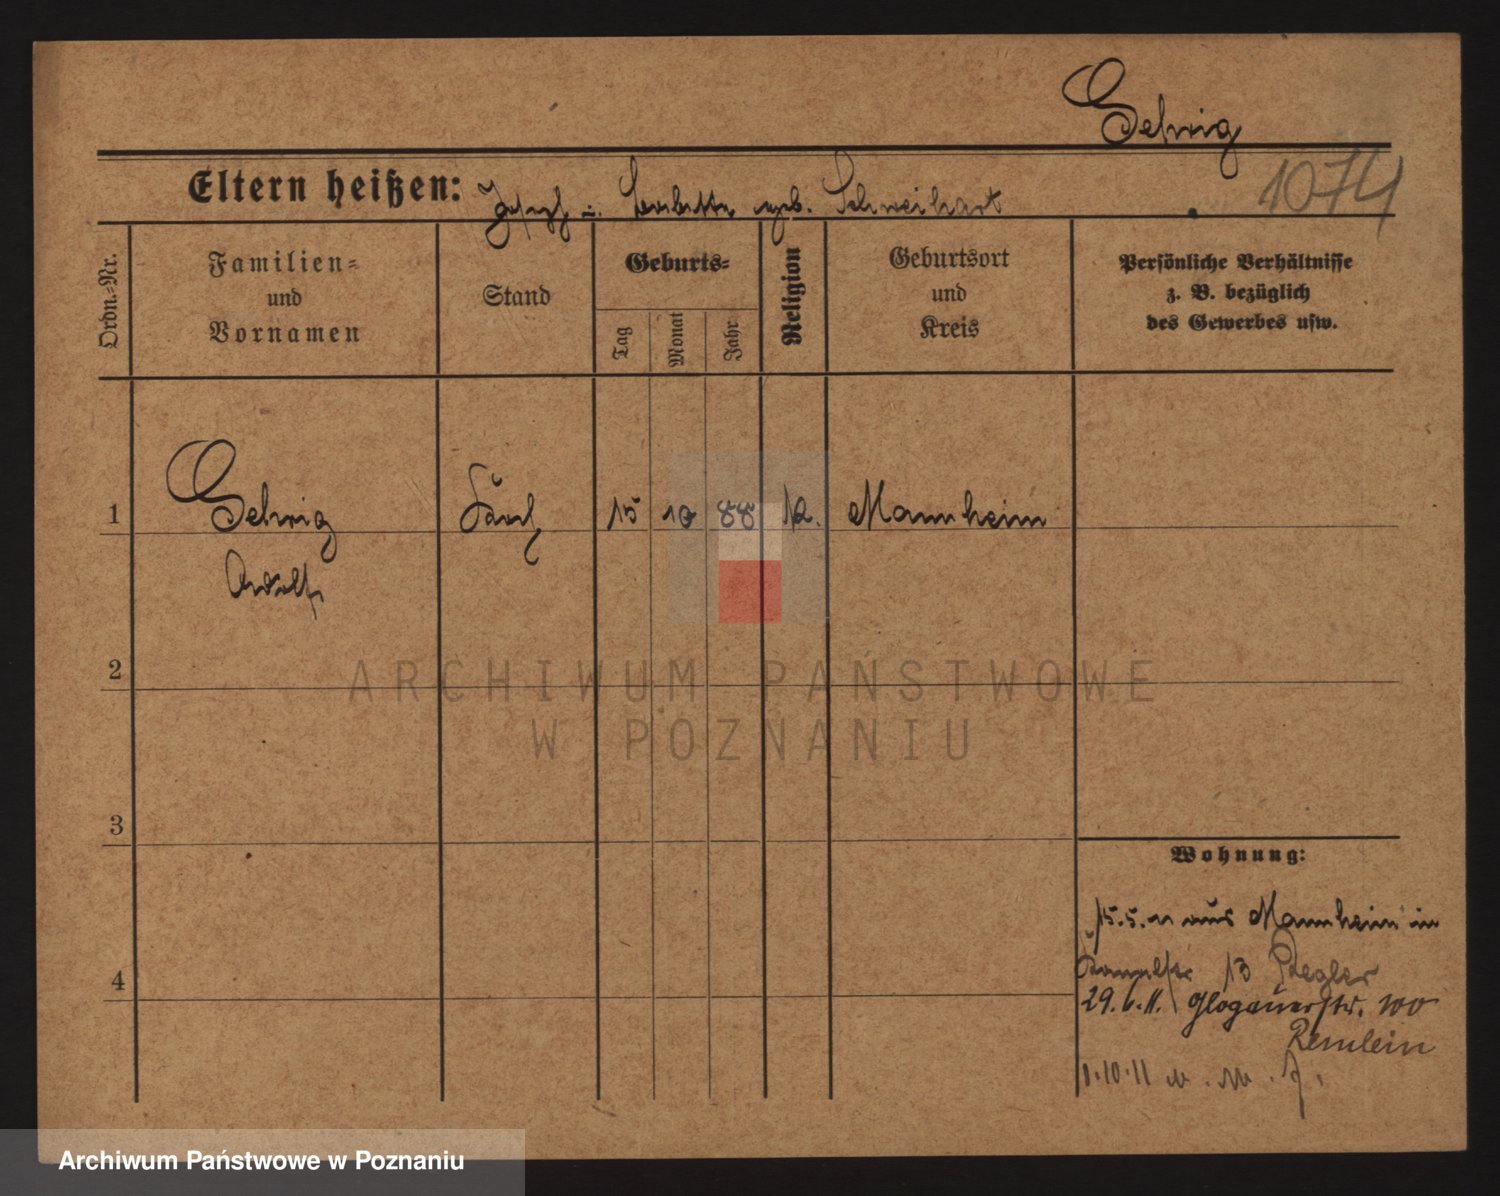 Gehrig
Eltern heißen: Josef u. Barbetta geb. Schweihart
1074
Ordn.-Nr.
Familien-
und
Vornamen
Stand
Geburts-
Tag
Monat
Jahr
Religion
Geburtsort
und
Kreis
Persönliche Verhältnisse
z. B. bezüglich
des Gewerbes usw.
1 Gehrig 15 10 88 k. Mannheim
Adolf
2
3
4
Wohnung:
15.5.11 aus Mannheim in
13 Ziegler
29.6.11. Glogauerstr. 100
Remlein
1.10.11
ARCHIWUM PAŃSTWOWE
W POZNANIU
Archiwum Państwowe w Poznaniu